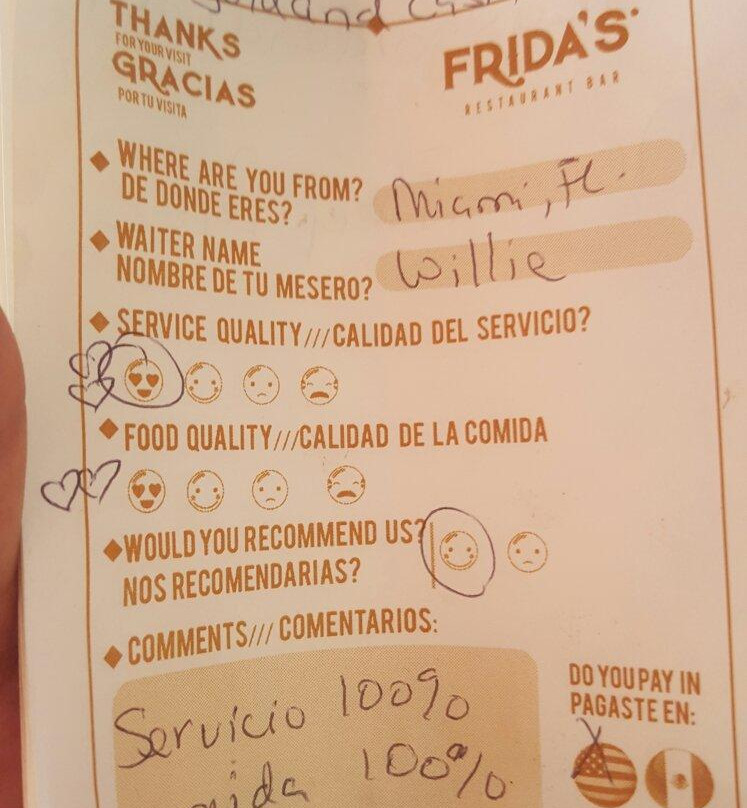 THANKS
FOR YOUR VISIT
GRACIAS
POR TU VISITA
FRIDA'S
RESTAURANT BAR
WHERE ARE YOU FROM?
DE DONDE ERES?
Miami, FL.
WAITER NAME
NOMBRE DE TU MESERO?
Willie
SERVICE QUALITY///CALIDAD DEL SERVICIO?
FOOD QUALITY///CALIDAD DE LA COMIDA
WOULD YOU RECOMMEND US?
NOS RECOMENDARIAS?
COMMENTS/// COMENTARIOS:
Servicio 100%
100%
DO YOU PAY IN
PAGASTE EN:
X